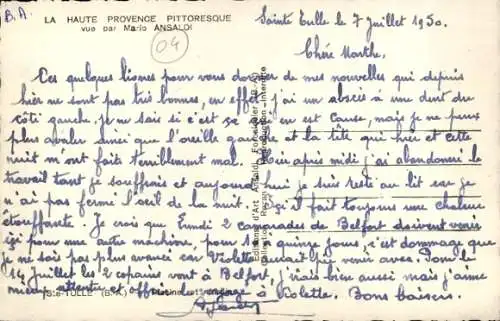 B.A.
LA HAUTE PROVENCE PITTORESQUE
vue par Mario ANSALDI
04
Sainte Tulle le 7 Juillet 1950.
Chère Marthe,
Ces quelques lignes pour vous donner de mes nouvelles qui depuis
hier ne sont pas très bonnes, en effet j'ai un abcès à une dent du
côté gauche, je ne sais si c'est se qui en est cause, mais je ne peux
plus avaler ainsi que l'oreille gauche et la tête qui and cette
nuit m'ont faits terriblement mal. Hier après midi j'ai abandonné le
travail tant je souffrais et aujourd'hui je suis resté au lit car je
n'ai pas fermé l'oeil de la nuit. Ici il fait toujours une chaleur
étouffante. Je crois que Lundi 2 camarades de Belfort doivent venir
ici pour une autre machine, pour quinze jours, c'est dommage que
je ne sois pas plus avancé car Violette aurait pu venir avec. Pour le
14 Juillet les 2 copains vont à Belfort, j'irais bien aussi mais j'aime
mieux attendre et offrir le voyage à Violette. Bons baisers.
Ste-TULLE (B.-A.)